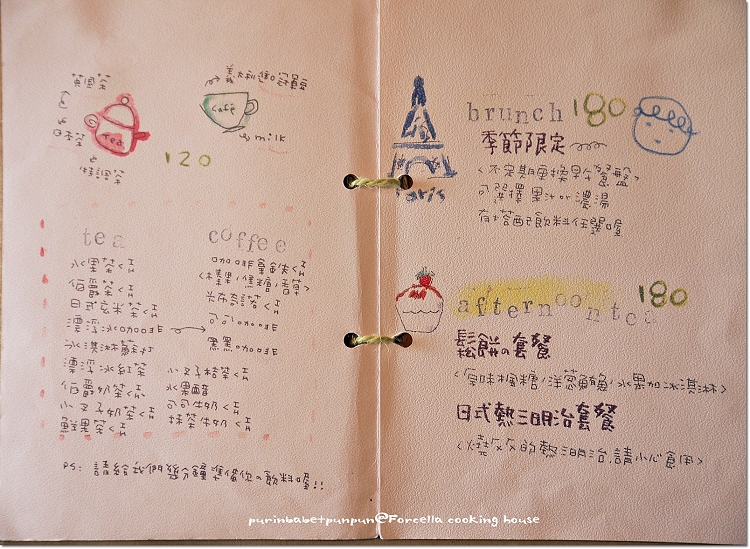 英國茶
日本茶
特調茶
tea
義大利進口
café
milk
120
tea
水果茶
伯爵茶
日式玄米茶
漂浮冰咖啡
水淇淋蘇打
漂浮冰紅茶
伯爵奶茶
小叉子奶茶
鮮果茶
小叉子桔茶
水果醋
可可牛奶
抹茶牛奶
coffee
咖啡拿鐵
<榛果/焦糖/香草>
卡布奇諾
可可咖啡
黑黑咖啡
PS: 請給我們幾分鐘準備你の飲料喔!!
Paris
brunch 180
季節限定
<不定期更換早午餐盤>
可選擇果汁or濃湯
有搭配飲料任選喔
afternoon tea 180
鬆餅の套餐
<原味楓糖/洋蔥鮪魚/水果加冰淇淋>
日式熱三明治套餐
<燒燙燙的熱三明治,請小心食用>
purinbabetpunpun@Forcella cooking house